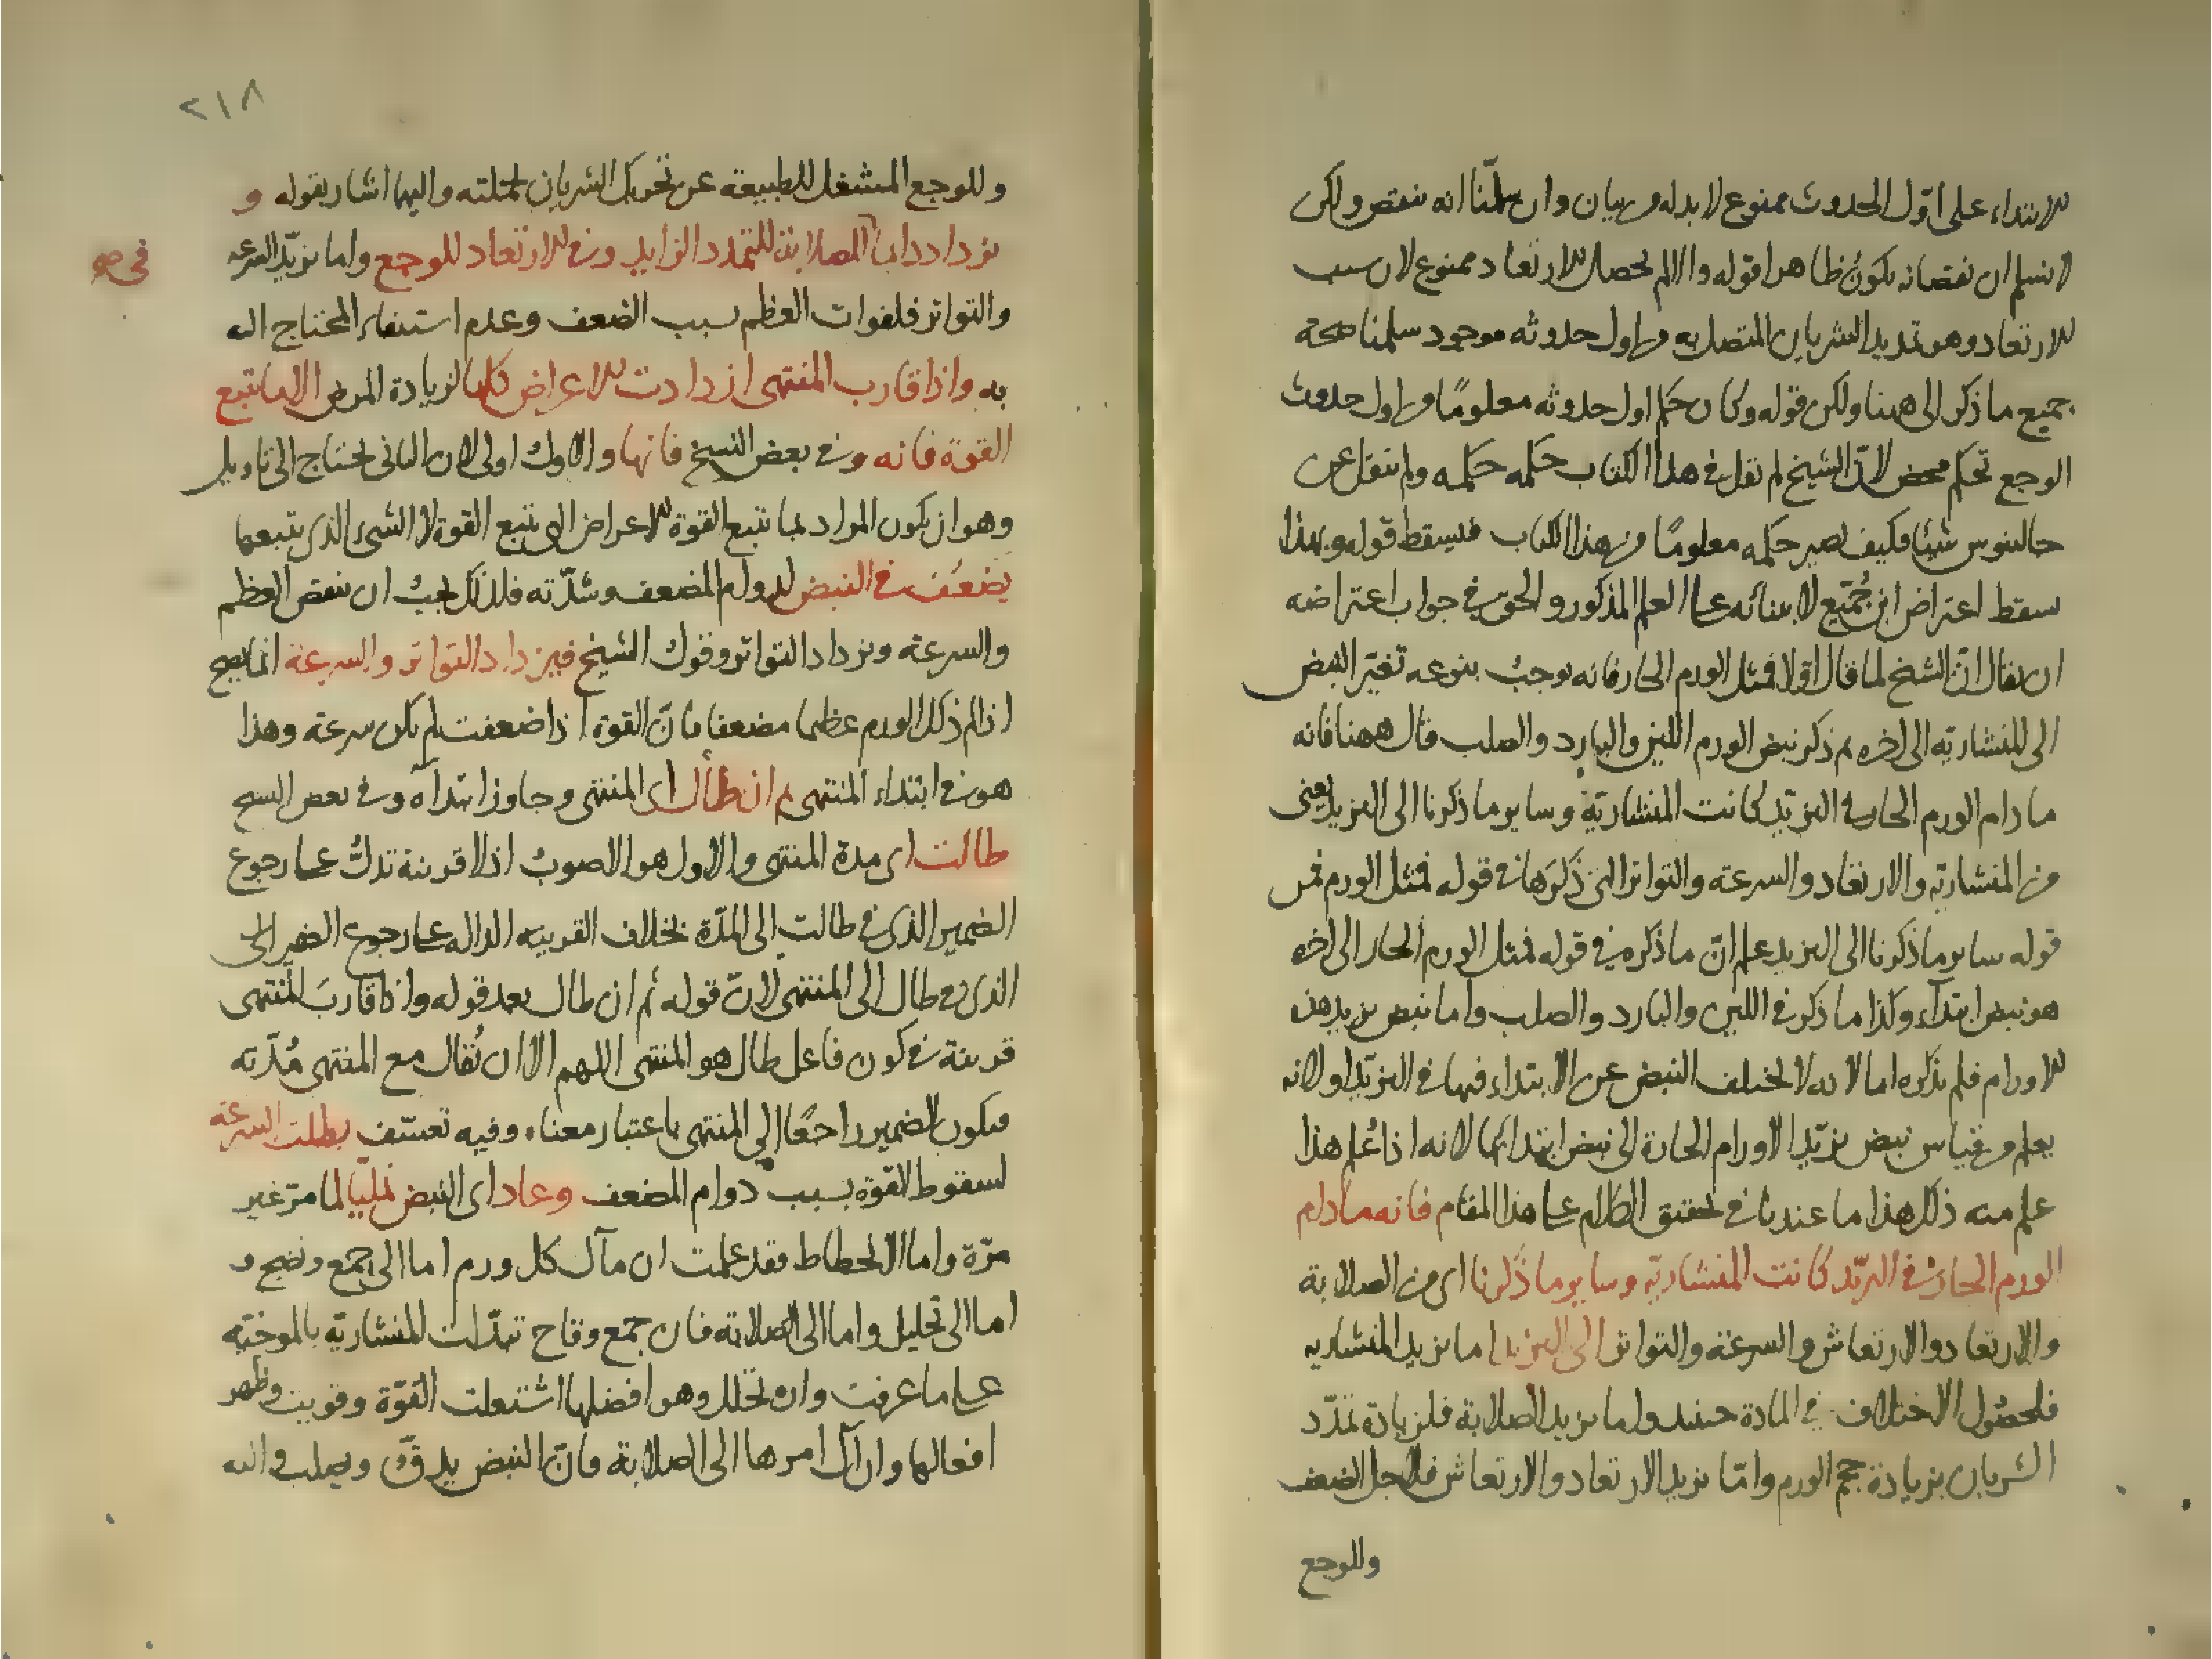 الابتداء على اول الحدوث ممنوع لا بد له من بيان وان سلمنا انه ينقص ولكن
لا نسلم ان نقصانه يكون ظاهرا قوله والا لم يحصل الارتعاد ممنوع لان سبب
الارتعاد وهو تمديد الشريان المتصل به في اول حدوثه موجود سلمنا صحة
جميع ما ذكر الى ههنا ولكن قوله وكان حكم اول حدوثه معلومًا في اول حدوث
الوجع تحكم محض لانّ الشيخ لم يقل في هذا الكتاب حكمه حكمه ولم ينقل عن
جالينوس شيئا فكيف يصير حكمه معلومًا في هذا الكتاب فيسقط قوله وبهذا
سقط اعتراض ابن جُمَيع لابتنائه على العلم المذكور والحق في جواب اعتراضه
ان يقال انّ الشيخ لما قال اولا فمثل الورم الحار فانه يوجب بنوعه تغيّر النبض
الى المنشارية الى اخره ثم ذكر نبض الورم اللين والبارد والصلب قال ههنا فانه
ما دام الورم الحار في التزيّد كانت المنشارية وساير ما ذكرنا الى التزيد يعنى
من المنشارية والارتعاد والسرعة والتواتر التى ذكَرَها في قوله فمثل الورم فمن
قوله ساير ما ذكرنا الى التزيد علم انّ ما ذكره في قوله فمثل الورم الحار الى اخره
هو نبض ابتدآء وكذا ما ذكر في اللين والبارد والصلب واما نبض تزيد هذه
الاورام فلم يذكره اما لانه لا يختلف النبض عن الابتداء فيها في التزيّد او لانه
يعلم من قياس نبض تزيّد الاورام الحارة الى نبض ابتدائها لانه اذا عُلم هذا
علم منه ذلك هذا ما عندنا في تحقيق الكلام على هذا المقام فانه ما دام
الورم الحار في التزيّد كانت المنشارية وساير ما ذكرنا اى من الصلابة
والارتعاد والارتعاش والسرعة والتواتر الى التزيد اما تزيد المنشارية
فلحصُول الاختلاف في المادة حينئذ واما تزيد الصلابة فلزيادة تمدّد
الشريان بزيادة حجم الورم وامّا تزيد الارتعاد والارتعاش فلاجل الضعف
وللوجع
٢١٨
وللوجع المشغل للطبيعة عن تحريك الشريان لجملته واليها اشار بقوله و
يزداد دايما الصلابة للتمدد الزايد وفي الارتعاد للوجع واما تزيّد السرعة
والتواتر فلفوات العظم بسبب الضعف وعدم استيفاء المحتاج اليه
به واذا قارب المنتهى ازدادت الاعراض كلها لزيادة المرض الا ما يتبع
القوة فانه وفي بعض النسخ فانها والاول اولى لان الثانى يحتاج الى تاويل
وهو ان يكون المراد بما تتبع القوة الاعراض التى تتبع القوة لا الشىء الذى يتبعها
يضعُف في النبض لدوام المضعف وشدّته فلذلك يجب ان ينقص العظم
والسرعة ويزداد التواتر وقول الشيخ فيزداد التواتر والسرعة انما يصح
اذا لم ذلك الورم عظيما مضعفا فانّ القوة اذا ضعفت لم يكن سرعة وهذا
هو في ابتداء المنتهى ثم ان طال اى المنتهى وجاوز ابتداه وفي بعض النسخ
طالت اى مدة المنتهى والاول هو الاصوب اذ لا قرينة تدلّ على رجوع
الضمير الذى في طالت الى المدّة بخلاف القرينة الدالة على رجوع الضمير الى
الذى في طال الى المنتهى لانّ قوله ثم ان طال بعد قوله واذا قاربَ المنتهى
قرينة في كون فاعل طال هو المنتهى اللهم الا ان يُقال مع المنتهى مُدّته
فيكون الضمير راجعًا الى المنتهى باعتبار معناه وفيه تعسّف بطلت السرعة
لسقوط القوة بسبب دوام المضعف وعاد اى النبض نمليّا لما مرّ غير
مرّة واما الانحطاط فقد علمت ان مآل كل ورم اما الى جمع ونضج و
اما الى تحليل واما الى الصلابة فان جمع وقاح تبدّلت المنشارية بالموجيّة
على ما عرفت وان تحلل وهو افضلها اشتعلت القوّة وقويت وظهر
افعالها وان آل امرها الى الصلابة فانّ النبض يدقّ ويصلب في اليه